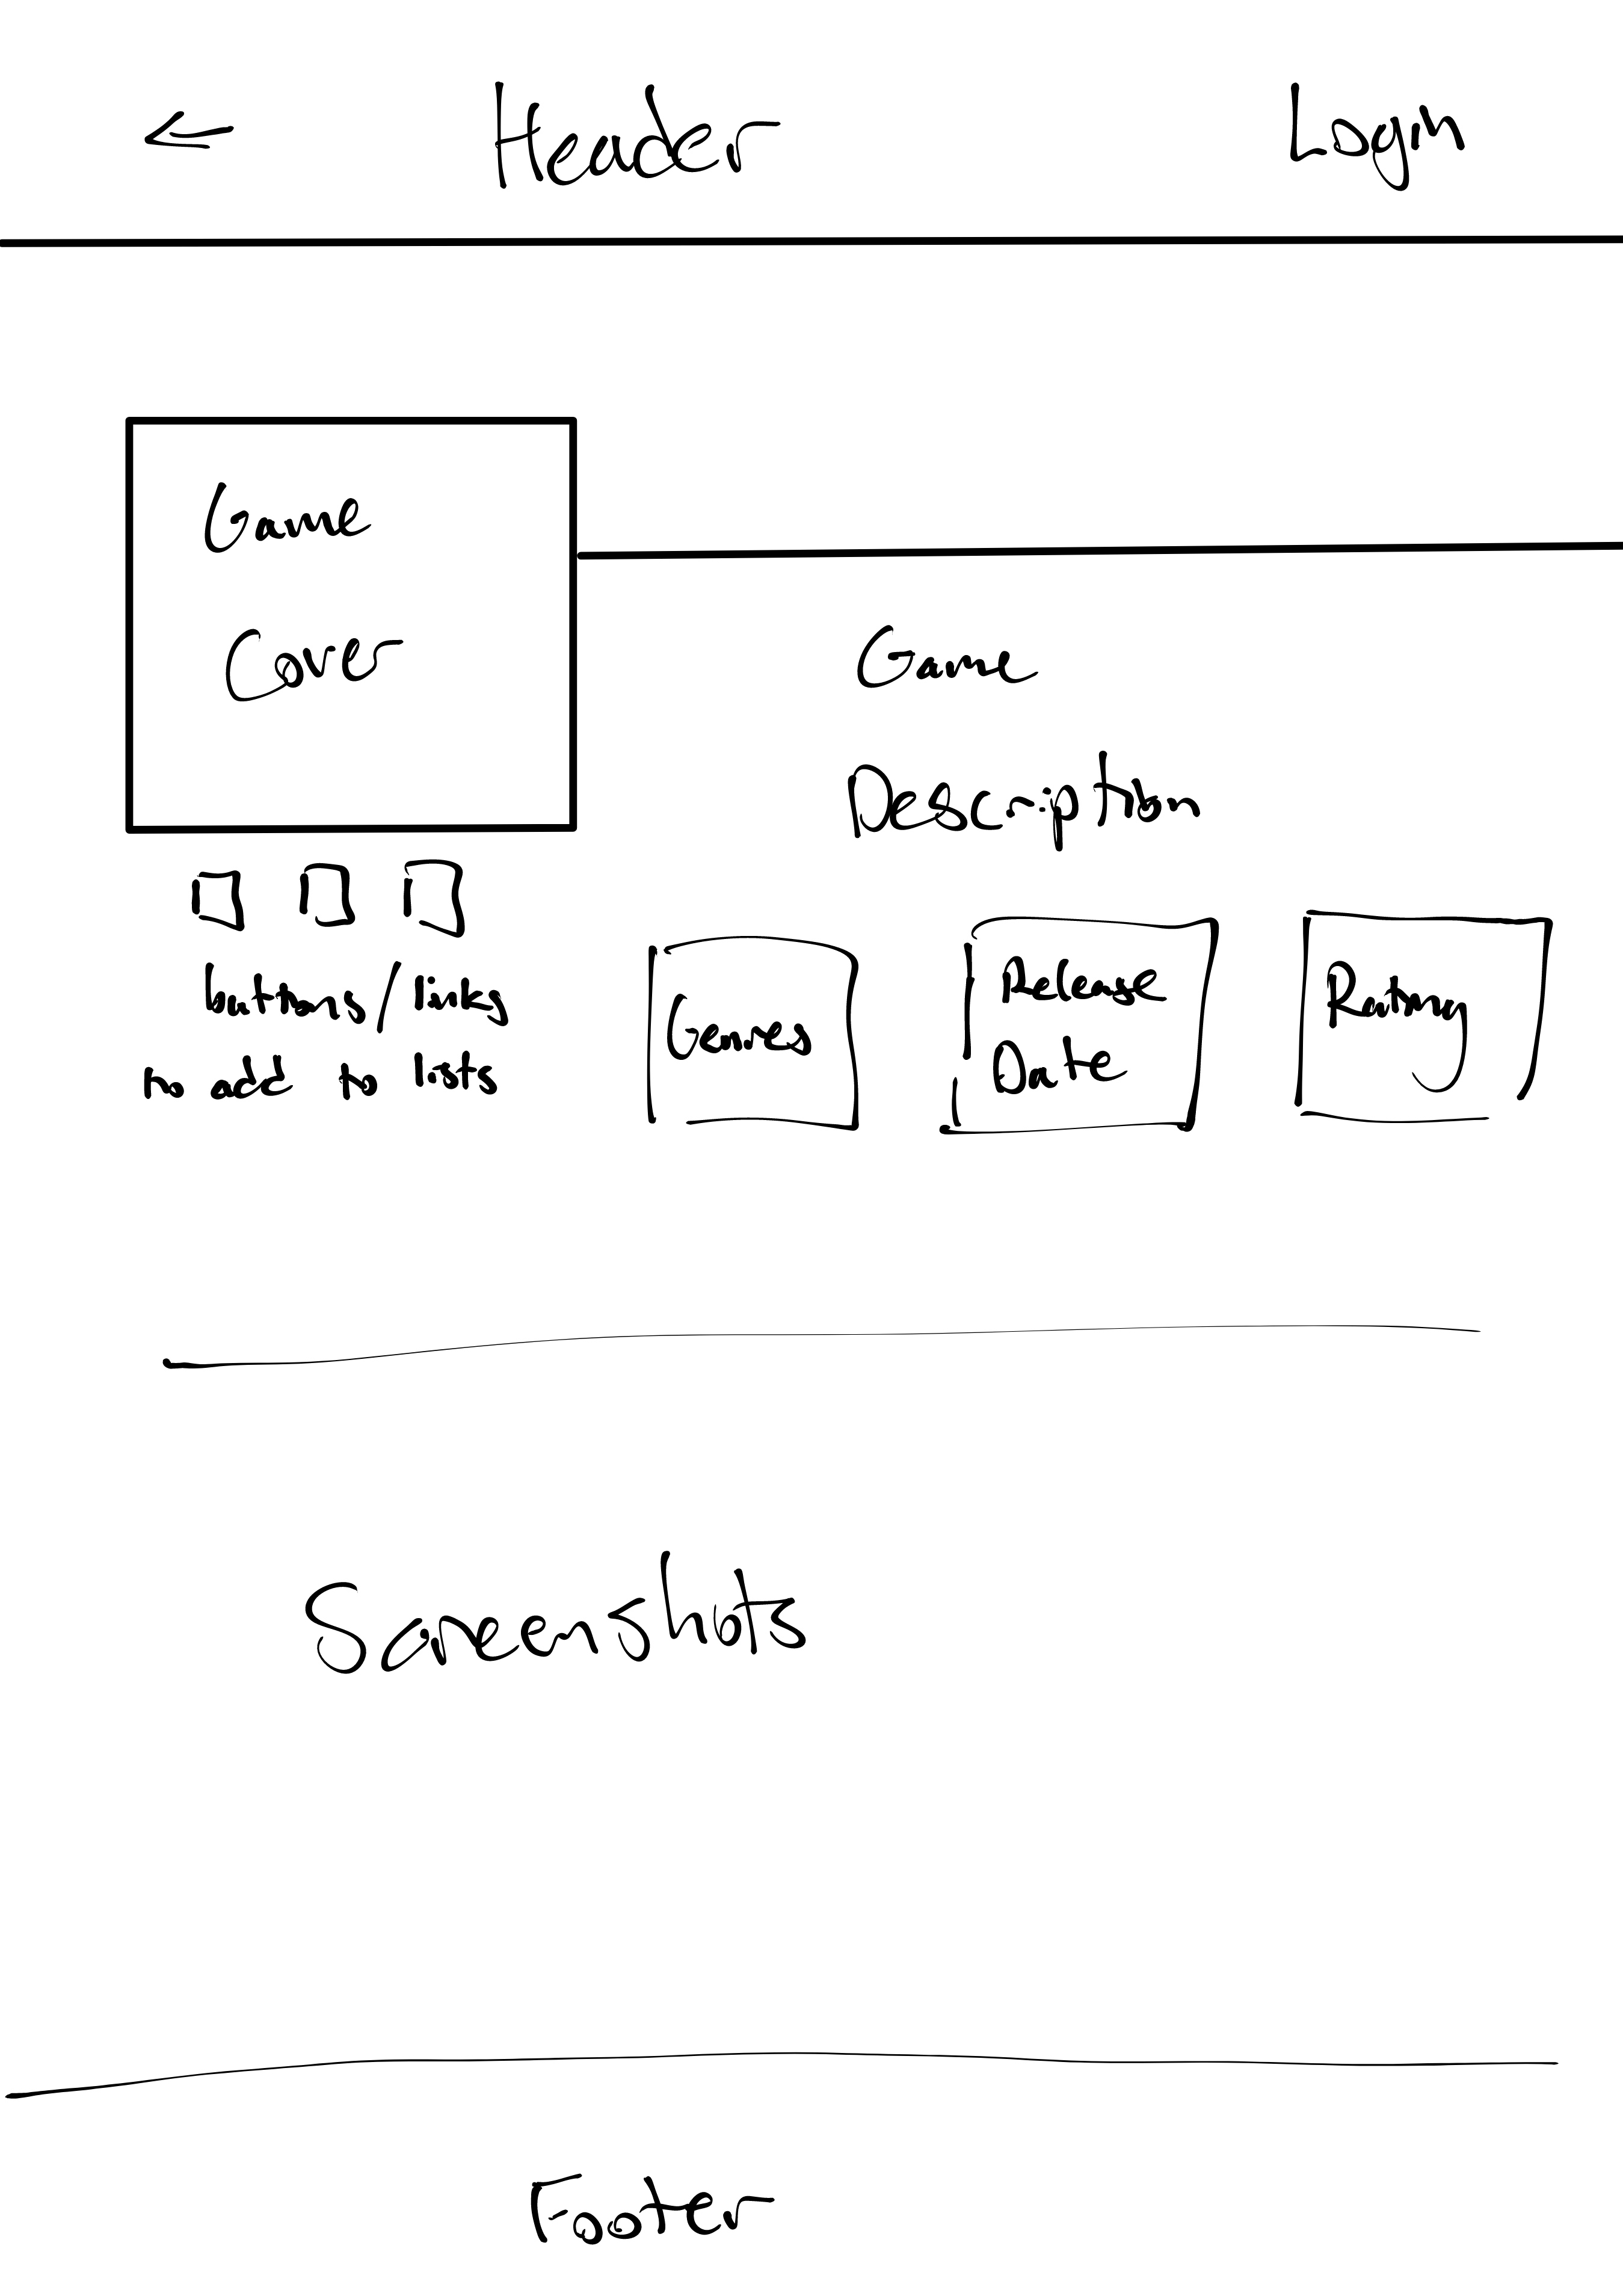 ← Header Login
Game
Cover
Game
Description
buttons/links
to add to lists
Genres
Release
Date
Rating
Screenshots
Footer